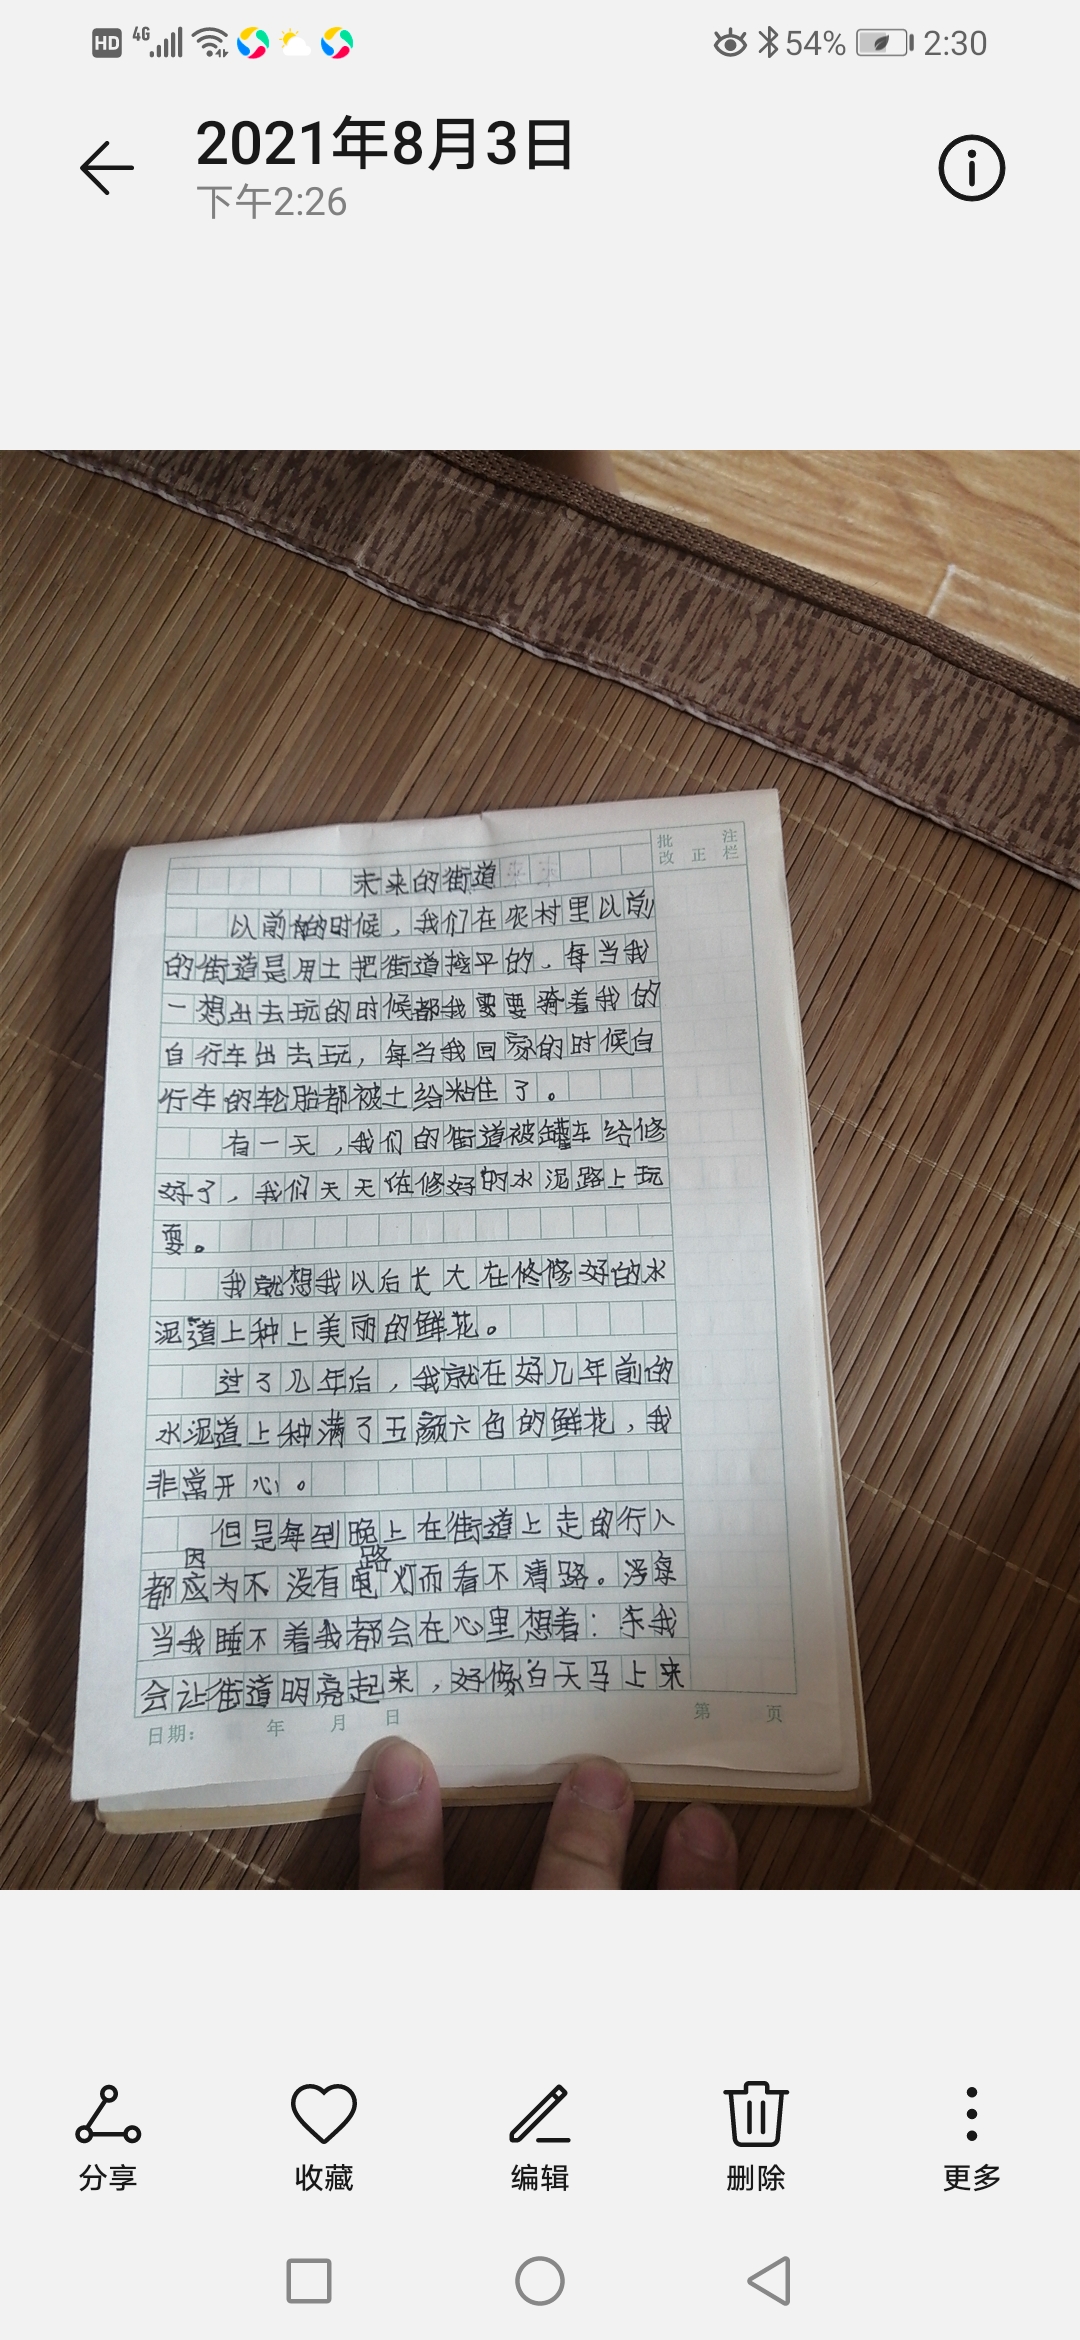 HD 4G 54% 2:30
2021年8月3日
下午2:26
批改 正 注栏
未来的街道
以前的时候，我们在农村里以前
的街道是用土把街道挖平的、每当我
一想出去玩的时候都我要要骑着我的
自行车出去玩，每当我回家的时候自
行车的轮胎都被土给粘住了。
有一天，我们的街道被罐车给修
好了，我们天天在修好的水泥路上玩
耍。
我就想我以后长大在修修好的水
泥道上种上美丽的鲜花。
过了几年后，我就在好几年前的
水泥道上种满了五颜六色的鲜花，我
非常开心。
但是每到晚上在街道上走的行人
因 路
都应为不没有电灯而看不清路。每
当我睡不着我都会在心里想着：我
会让街道明亮起来，好像白天马上来
日期： 年 月 日 第 页
分享 收藏 编辑 删除 更多